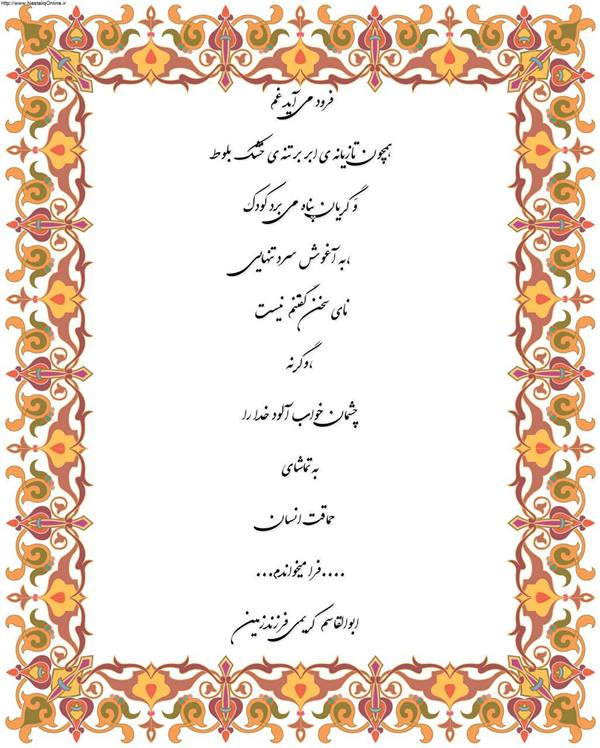 http://www.NastaliqOnline.ir
فرود می آید غم
همچون تازیانه ی ابر بر تنه ی خشک بلوط
وَ گریان پناه می برد کودک
،به آغوش سرد تنهایی
نای سخن گفتنم نیست
،وگرنه
چشمان خواب آلود خدا را
به تماشای
حماقت انسان
....فرا میخواندم...
ابوالقاسم کریمی فرزندزمین